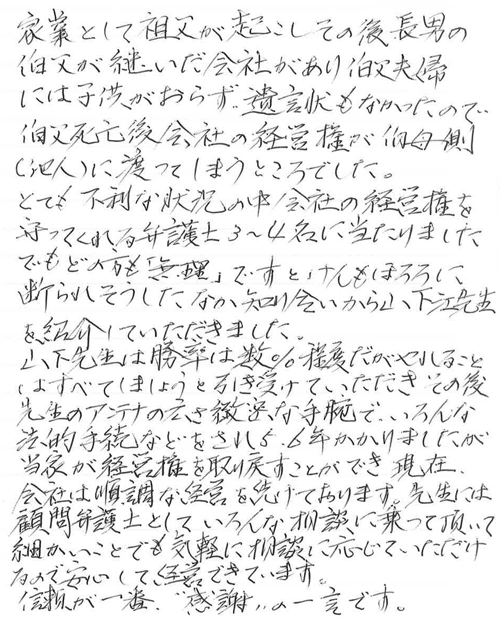 家業として祖父が起こしその後長男の
伯父が継いだ会社があり伯父夫婦
には子供がおらず、遺言状もなかったので
伯父死亡後会社の経営権が伯母側
(他人)に渡ってしまうところでした。
とても不利な状況の中会社の経営権を
守ってくれる弁護士3〜4名に当たりました
でもどの方も「無理」ですとけんもほろろに
断られそうしたなか知り合いから山下江先生
を紹介していただきました。
山下先生は勝率は数%程度だがやれること
はすべてしましょうと引き受けていただきその後
先生のアンテナの広さ緻密な手腕で、いろんな
法的手続などをされ5.6年かかりましたが
当家が経営権を取り戻すことができ現在、
会社は順調な経営を続けております。先生には
顧問弁護士としていろんな相談に乗って頂いて
細かいことでも気軽に相談に応じていただけ
るので安心して経営できています。
信頼が一番、"感謝"の一言です。